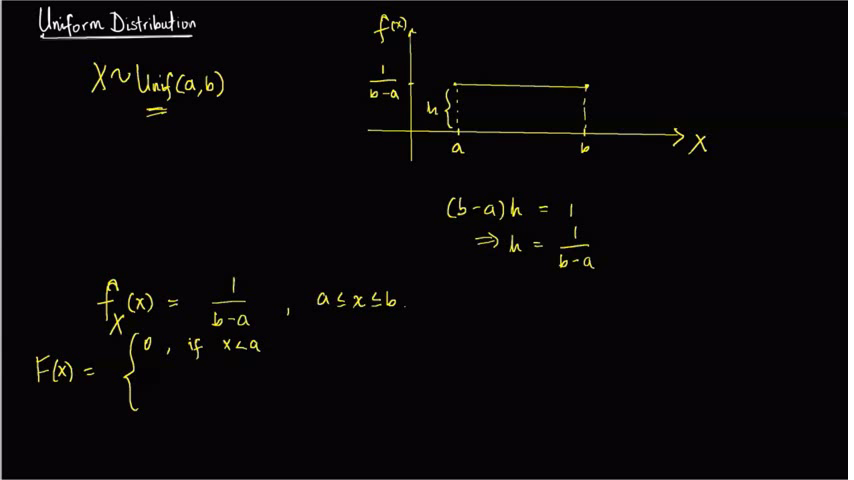 Uniform Distribution
X ~ Unif(a,b)
f(x)
1/(b-a)
h
a
b
X
(b-a)h = 1
⇒ h = 1/(b-a)
f_X(x) = 1/(b-a) , a ≤ x ≤ b.
F(x) = { 0 , if x < a